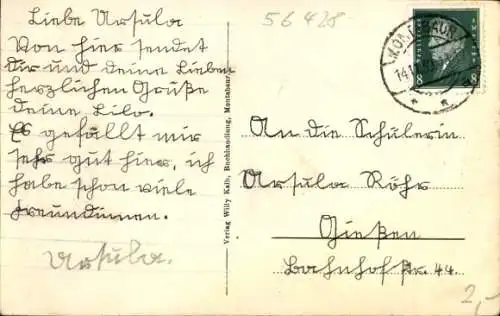 Liebe Ursula
56428
Von hier sendet
Dir und deine Lieben
herzlichen Grüße
deine, Lilo.
Es gefällt mir
sehr gut hier, ich
habe schon viele
Freundinnen.
Ursula.
Verlag Willy Kalb, Buchhandlung, Montabaur
MONTABAUR
14.1
8 8
An die Schülerin
Ursula Röhr
Gießen
Bahnhofstr. 44.
2,-